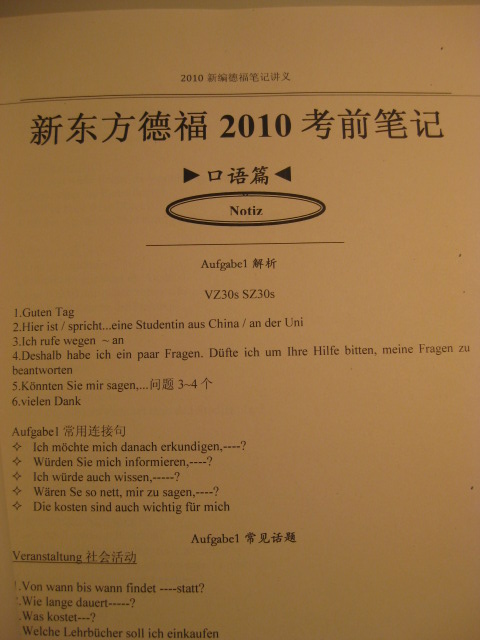 2010 新编德福笔记讲义
新东方德福 2010 考前笔记
▶口语篇◀
Notiz
Aufgabe1 解析
VZ30s SZ30s
1.Guten Tag
2.Hier ist / spricht...eine Studentin aus China / an der Uni
3.Ich rufe wegen ~ an
4.Deshalb habe ich ein paar Fragen. Düfte ich um Ihre Hilfe bitten, meine Fragen zu
beantworten
5.Könnten Sie mir sagen,...问题 3~4 个
6.vielen Dank
Aufgabe1 常用连接句
✧ Ich möchte mich danach erkundigen,----?
✧ Würden Sie mich informieren,----?
✧ Ich würde auch wissen,-----?
✧ Wären Se so nett, mir zu sagen,----?
✧ Die kosten sind auch wichtig für mich
Aufgabe1 常见话题
Veranstaltung 社会活动
.Von wann bis wann findet ----statt?
.Wie lange dauert-----?
.Was kostet---?
Welche Lehrbücher soll ich einkaufen